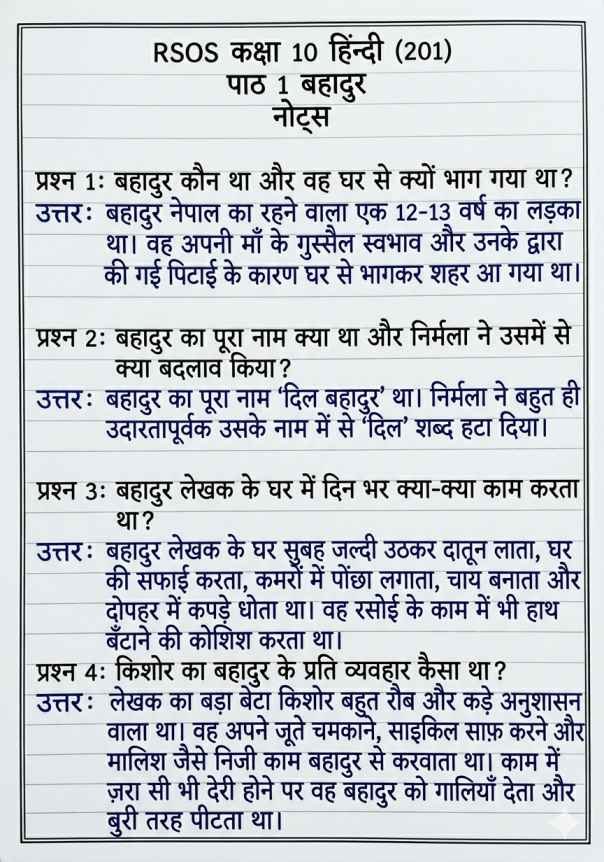 RSOS कक्षा 10 हिंन्दी (201)
पाठ 1 बहादुर
नोट्स
प्रश्न 1: बहादुर कौन था और वह घर से क्यों भाग गया था?
उत्तर: बहादुर नेपाल का रहने वाला एक 12-13 वर्ष का लड़का
था। वह अपनी माँ के गुस्सैल स्वभाव और उनके द्वारा
की गई पिटाई के कारण घर से भागकर शहर आ गया था।
प्रश्न 2: बहादुर का पूरा नाम क्या था और निर्मला ने उसमें से
क्या बदलाव किया?
उत्तर: बहादुर का पूरा नाम ‘दिल बहादुर’ था। निर्मला ने बहुत ही
उदारतापूर्वक उसके नाम में से ‘दिल’ शब्द हटा दिया।
प्रश्न 3: बहादुर लेखक के घर में दिन भर क्या-क्या काम करता
था?
उत्तर: बहादुर लेखक के घर सुबह जल्दी उठकर दातून लाता, घर
की सफाई करता, कमरों में पोंछा लगाता, चाय बनाता और
दोपहर में कपड़े धोता था। वह रसोई के काम में भी हाथ
बँटाने की कोशिश करता था।
प्रश्न 4: किशोर का बहादुर के प्रति व्यवहार कैसा था?
उत्तर: लेखक का बड़ा बेटा किशोर बहुत रौब और कड़े अनुशासन
वाला था। वह अपने जूते चमकाने, साइकिल साफ़ करने और
मालिश जैसे निजी काम बहादुर से करवाता था। काम में
ज़रा सी भी देरी होने पर वह बहादुर को गालियाँ देता और
बुरी तरह पीटता था।